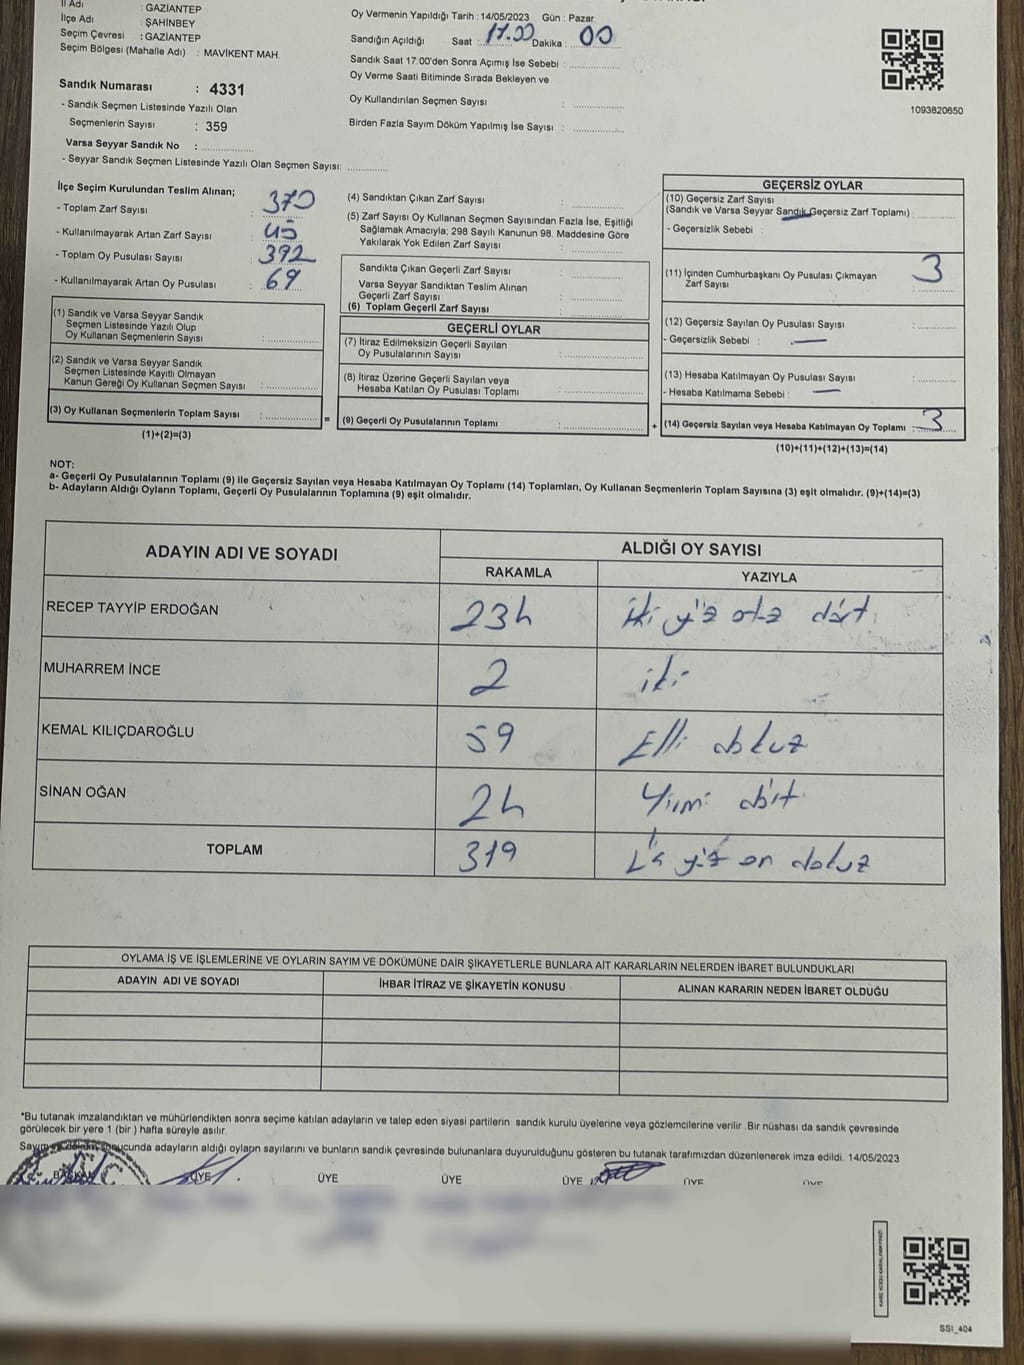 İl Adı : GAZİANTEP
İlçe Adı : ŞAHİNBEY
Seçim Çevresi : GAZİANTEP
Seçim Bölgesi (Mahalle Adı) : MAVİKENT MAH.
Sandık Numarası : 4331
- Sandık Seçmen Listesinde Yazılı Olan
Seçmenlerin Sayısı : 359
Varsa Seyyar Sandık No :
- Seyyar Sandık Seçmen Listesinde Yazılı Olan Seçmen Sayısı:
Oy Vermenin Yapıldığı Tarih : 14/05/2023 Gün : Pazar
Sandığın Açıldığı Saat : 17.00 Dakika : 00
Sandık Saat 17:00'den Sonra Açımış İse Sebebi :
Oy Verme Saati Bitiminde Sırada Bekleyen ve
Oy Kullandırılan Seçmen Sayısı :
Birden Fazla Sayım Döküm Yapılmış İse Sayısı :
1093820650
İlçe Seçim Kurulundan Teslim Alınan;
- Toplam Zarf Sayısı : 370
- Kullanılmayarak Artan Zarf Sayısı : 45
- Toplam Oy Pusulası Sayısı : 392
- Kullanılmayarak Artan Oy Pusulası : 69
(1) Sandık ve Varsa Seyyar Sandık
Seçmen Listesinde Yazılı Olup
Oy Kullanan Seçmenlerin Sayısı :
(2) Sandık ve Varsa Seyyar Sandık
Seçmen Listesinde Kayıtlı Olmayan
Kanun Gereği Oy Kullanan Seçmen Sayısı :
(3) Oy Kullanan Seçmenlerin Toplam Sayısı : =
(1)+(2)=(3)
(4) Sandıktan Çıkan Zarf Sayısı :
(5) Zarf Sayısı Oy Kullanan Seçmen Sayısından Fazla İse, Eşitliği
Sağlamak Amacıyla; 298 Sayılı Kanunun 98. Maddesine Göre
Yakılarak Yok Edilen Zarf Sayısı :
Sandıkta Çıkan Geçerli Zarf Sayısı :
Varsa Seyyar Sandıktan Teslim Alınan
Geçerli Zarf Sayısı :
(6) Toplam Geçerli Zarf Sayısı :
GEÇERLİ OYLAR
(7) İtiraz Edilmeksizin Geçerli Sayılan
Oy Pusulalarının Sayısı :
(8) İtiraz Üzerine Geçerli Sayılan veya
Hesaba Katılan Oy Pusulası Toplamı :
(9) Geçerli Oy Pusulalarının Toplamı : +
GEÇERSİZ OYLAR
(10) Geçersiz Zarf Sayısı
(Sandık ve Varsa Seyyar Sandık Geçersiz Zarf Toplamı) :
- Geçersizlik Sebebi :
(11) İçinden Cumhurbaşkanı Oy Pusulası Çıkmayan
Zarf Sayısı : 3
(12) Geçersiz Sayılan Oy Pusulası Sayısı :
- Geçersizlik Sebebi : —
(13) Hesaba Katılmayan Oy Pusulası Sayısı :
- Hesaba Katılmama Sebebi : —
(14) Geçersiz Sayılan veya Hesaba Katılmayan Oy Toplamı : 3
(10)+(11)+(12)+(13)=(14)
NOT:
a- Geçerli Oy Pusulalarının Toplamı (9) ile Geçersiz Sayılan veya Hesaba Katılmayan Oy Toplamı (14) Toplamları, Oy Kullanan Seçmenlerin Toplam Sayısına (3) eşit olmalıdır. (9)+(14)=(3)
b- Adayların Aldığı Oyların Toplamı, Geçerli Oy Pusulalarının Toplamına (9) eşit olmalıdır.
ADAYIN ADI VE SOYADI ALDIĞI OY SAYISI
RAKAMLA YAZIYLA
RECEP TAYYİP ERDOĞAN 234 iki yüz otuz dört
MUHARREM İNCE 2 iki
KEMAL KILIÇDAROĞLU 59 Elli dokuz
SİNAN OĞAN 24 Yirmi dört
TOPLAM 319 üç yüz on dokuz
OYLAMA İŞ VE İŞLEMLERİNE VE OYLARIN SAYIM VE DÖKÜMÜNE DAİR ŞİKAYETLERLE BUNLARA AİT KARARLARIN NELERDEN İBARET BULUNDUKLARI
ADAYIN ADI VE SOYADI İHBAR İTİRAZ VE ŞİKAYETİN KONUSU ALINAN KARARIN NEDEN İBARET OLDUĞU
*Bu tutanak imzalandıktan ve mühürlendikten sonra seçime katılan adayların ve talep eden siyasi partilerin sandık kurulu üyelerine veya gözlemcilerine verilir .Bir nüshası da sandık çevresinde
görülecek bir yere 1 (bir ) hafta süreyle asılır.
Sayım ve döküm sonucunda adayların aldığı oyların sayılarını ve bunların sandık çevresinde bulunanlara duyurulduğunu gösteren bu tutanak tarafımızdan düzenlenerek imza edildi. 14/05/2023
BAŞKAN ÜYE ÜYE ÜYE ÜYE ÜYE ÜYE
SSI_404